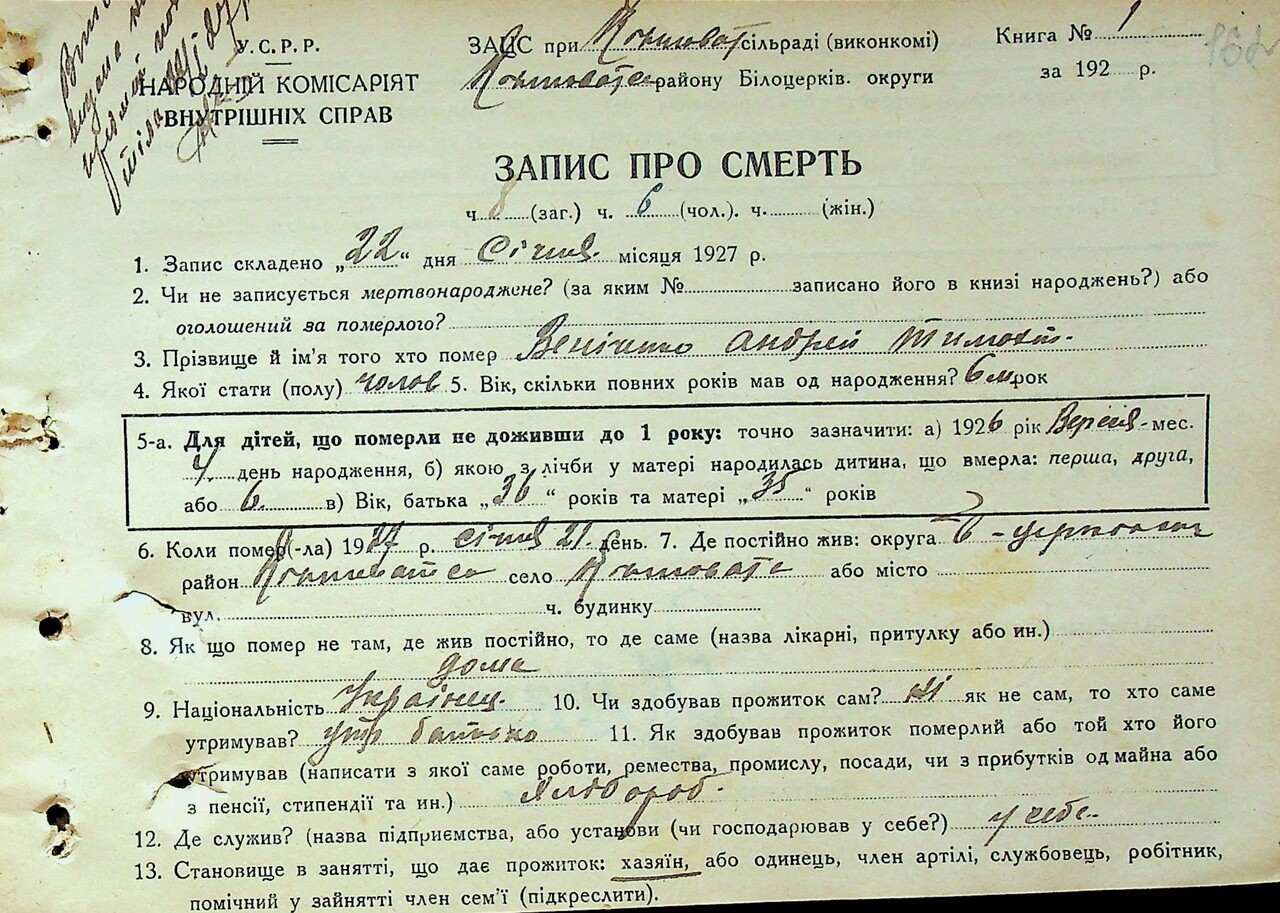 У.С.Р.Р.
НАРОДНІЙ КОМІСАРІЯТ
ВНУТРІШНІХ СПРАВ
ЗАГС при сільраді (виконкомі)
району Білоцерків. округи
Книга № 1
за 192 р.
ЗАПИС ПРО СМЕРТЬ
ч. 8 (заг.) ч. 6 (чол.). ч. (жін.)
1. Запис складено „22“ дня Січня місяця 1927 р.
2. Чи не записується мертвонароджене? (за яким № записано його в книзі народжень?) або
оголошений за померлого?
3. Прізвище й ім'я того хто помер Андрей Тимохв.
4. Якої стати (полу) чолов 5. Вік, скільки повних років мав од народження? 6 м. рок
5-а. Для дітей, що померли не доживши до 1 року: точно зазначити: а) 1926 рік Вересня мес.
день народження, б) якою з лічби у матері народилась дитина, що вмерла: перша, друга,
або 6. в) Вік, батька „36“ років та матері „35“ років
6. Коли помер(-ла) 1927 р. січня 21. день. 7. Де постійно жив: округа Б-церковск
район село або місто
вул. ч. будинку
8. Як що помер не там, де жив постійно, то де саме (назва лікарні, притулку або ин.)
дома
9. Національність Українец. 10. Чи здобував прожиток сам? ні як не сам, то хто саме
утримував? утр батько 11. Як здобував прожиток померлий або той хто його
утримував (написати з якої саме роботи, ремества, промислу, посади, чи з прибутків од майна або
з пенсії, стипендії та ин.) Хлібороб.
12. Де служив? (назва підприємства, або установи (чи господарював у себе?) у себе.
13. Становище в занятті, що дає прожиток: хазяїн, або одинець, член артілі, службовець, робітник,
помічний у зайнятті член сем'ї (підкреслити).